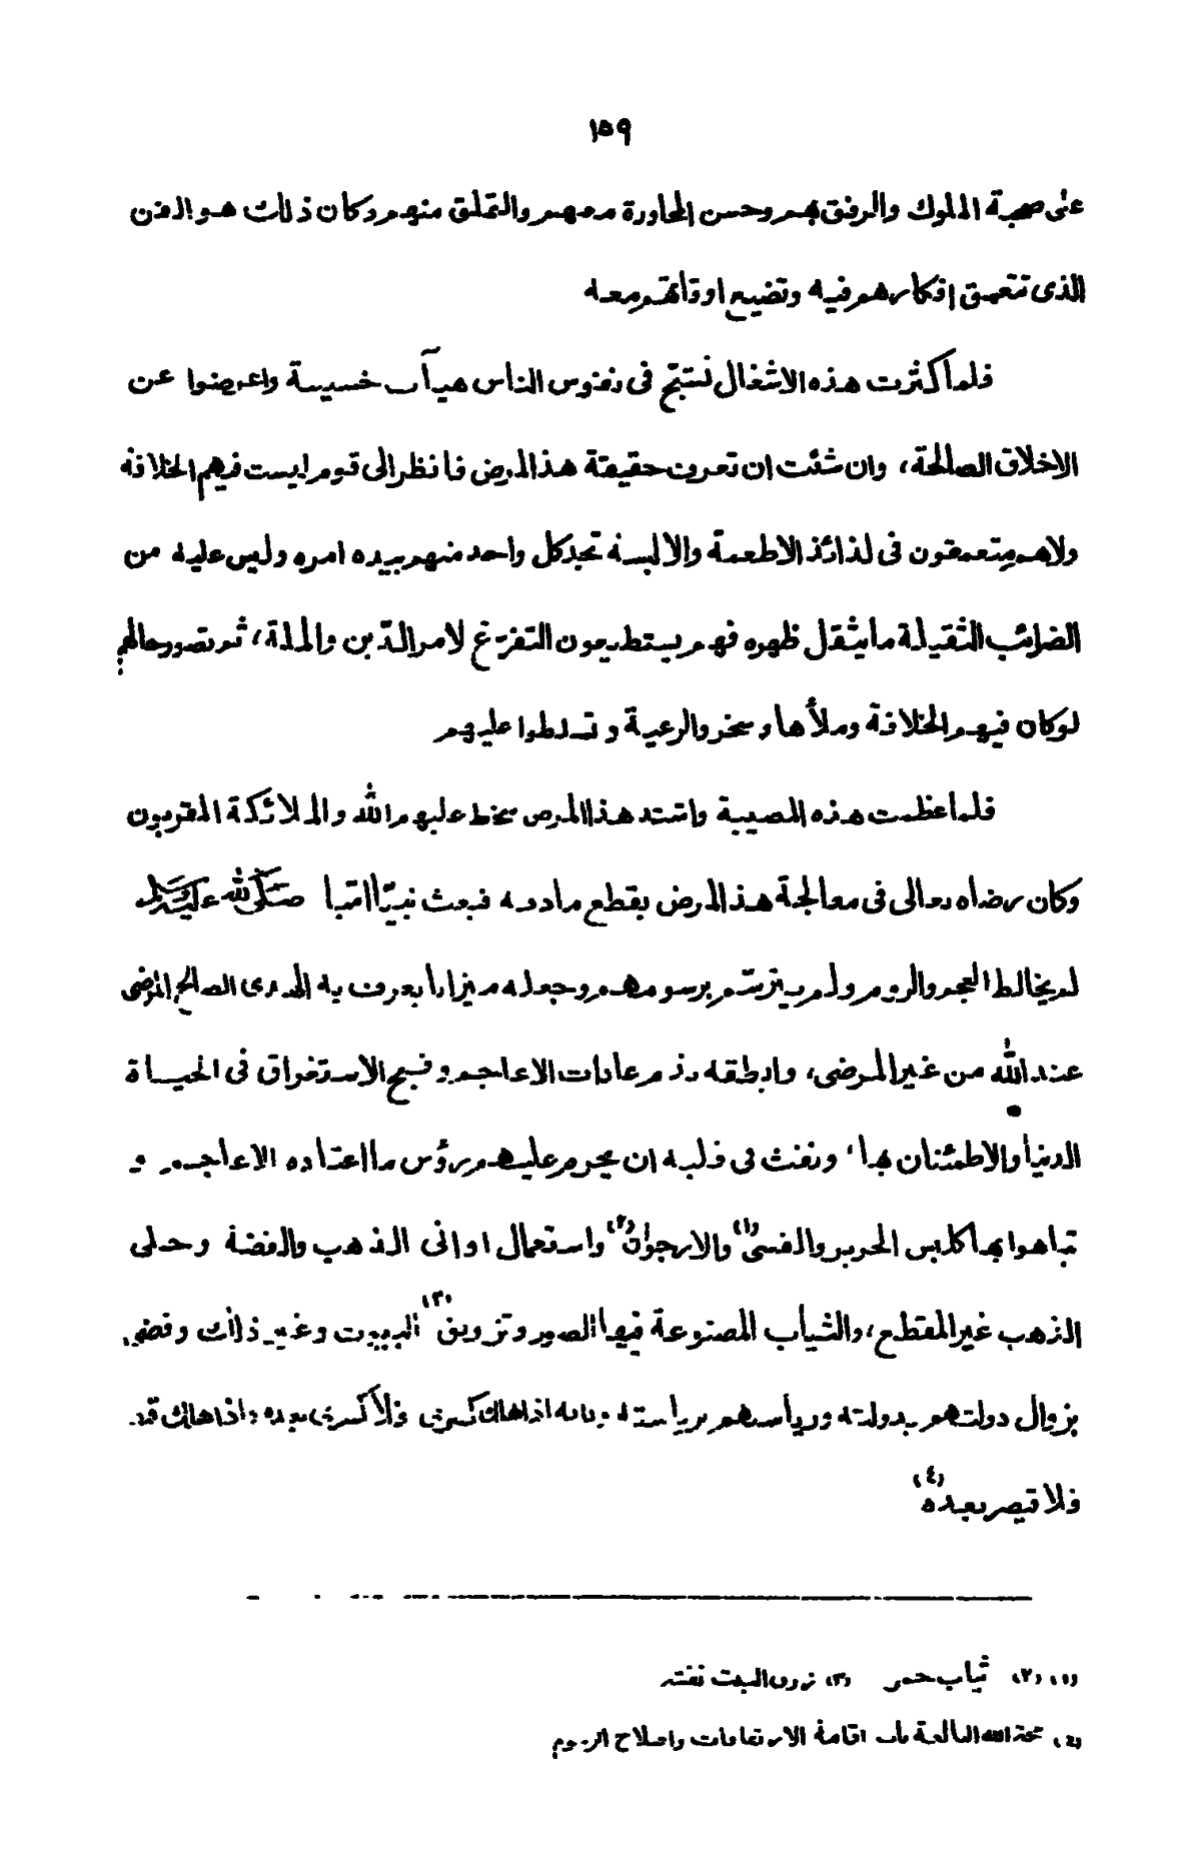 ١٥٩
على صحبة الملوك والرفق بهم وحسن المحاورة معهم والتملق منهم وكان ذلك هو الفن
الذى تتعمق افكارهم فيه وتضيع اوقاتهم معه
فلما كثرت هذه الاشغال نتبّج فى نفوس الناس هيآت خسيسة واعرضوا عن
الاخلاق الصالحة، وان شئت ان تعرف حقيقة هذا المرض فانظر الى قوم ليست فيهم الخلافة
ولاهم متعمقون فى لذائذ الاطعمة والالبسة تجد كل واحد منهم بيده امره وليس عليه من
الضرائب الثقيلة ما يثقل ظهره فهم يستطيعون التفرّغ لامر الدّين والملة، ثم تصور حالهم
لو كان فيهم الخلافة وملأها وسخروا الرعية وتسلطوا عليهم
فلما عظمت هذه المصيبة واشتد هذا المرض سخط عليهم الله والملائكة المقربون
وكان رضاه تعالى فى معالجة هذا المرض بقطع مادته فبعث نبيّا امّيا صلى الله عليه وسلم
لم يخالط العجم والروم ولم يترسّم برسومهم وجعله ميزانا يعرف به الهدى الصالح المرضى
عند الله من غير المرضى، وانطقه بذم عادات الاعاجم وقبح الاستغراق فى الحياة
الدنيا والاطمئنان بها، ونفث فى قلبه ان يحرم عليهم رؤس ما اعتاده الاعاجم و
تباهوا بها كلبس الحرير والقسى(١) والارجوان(٢) واستعمال اوانى الذهب والفضة وحلى
الذهب غير المقطع، والثياب المصنوعة فيها الصور وتزويق(٣) البيوت وغير ذلك وقضى
بزوال دولتهم بدولته ورياستهم برياسته وبانه اذا هلك كسرى فلا كسرى بعده واذا هلك قيصر
فلا قيصر بعده(٤)
(١)، (٢) ثياب حمر (٣) زوق البيت نقشه
(٤) حجة الله البالغة باب اقامة الارتفاقات واصلاح الرسوم